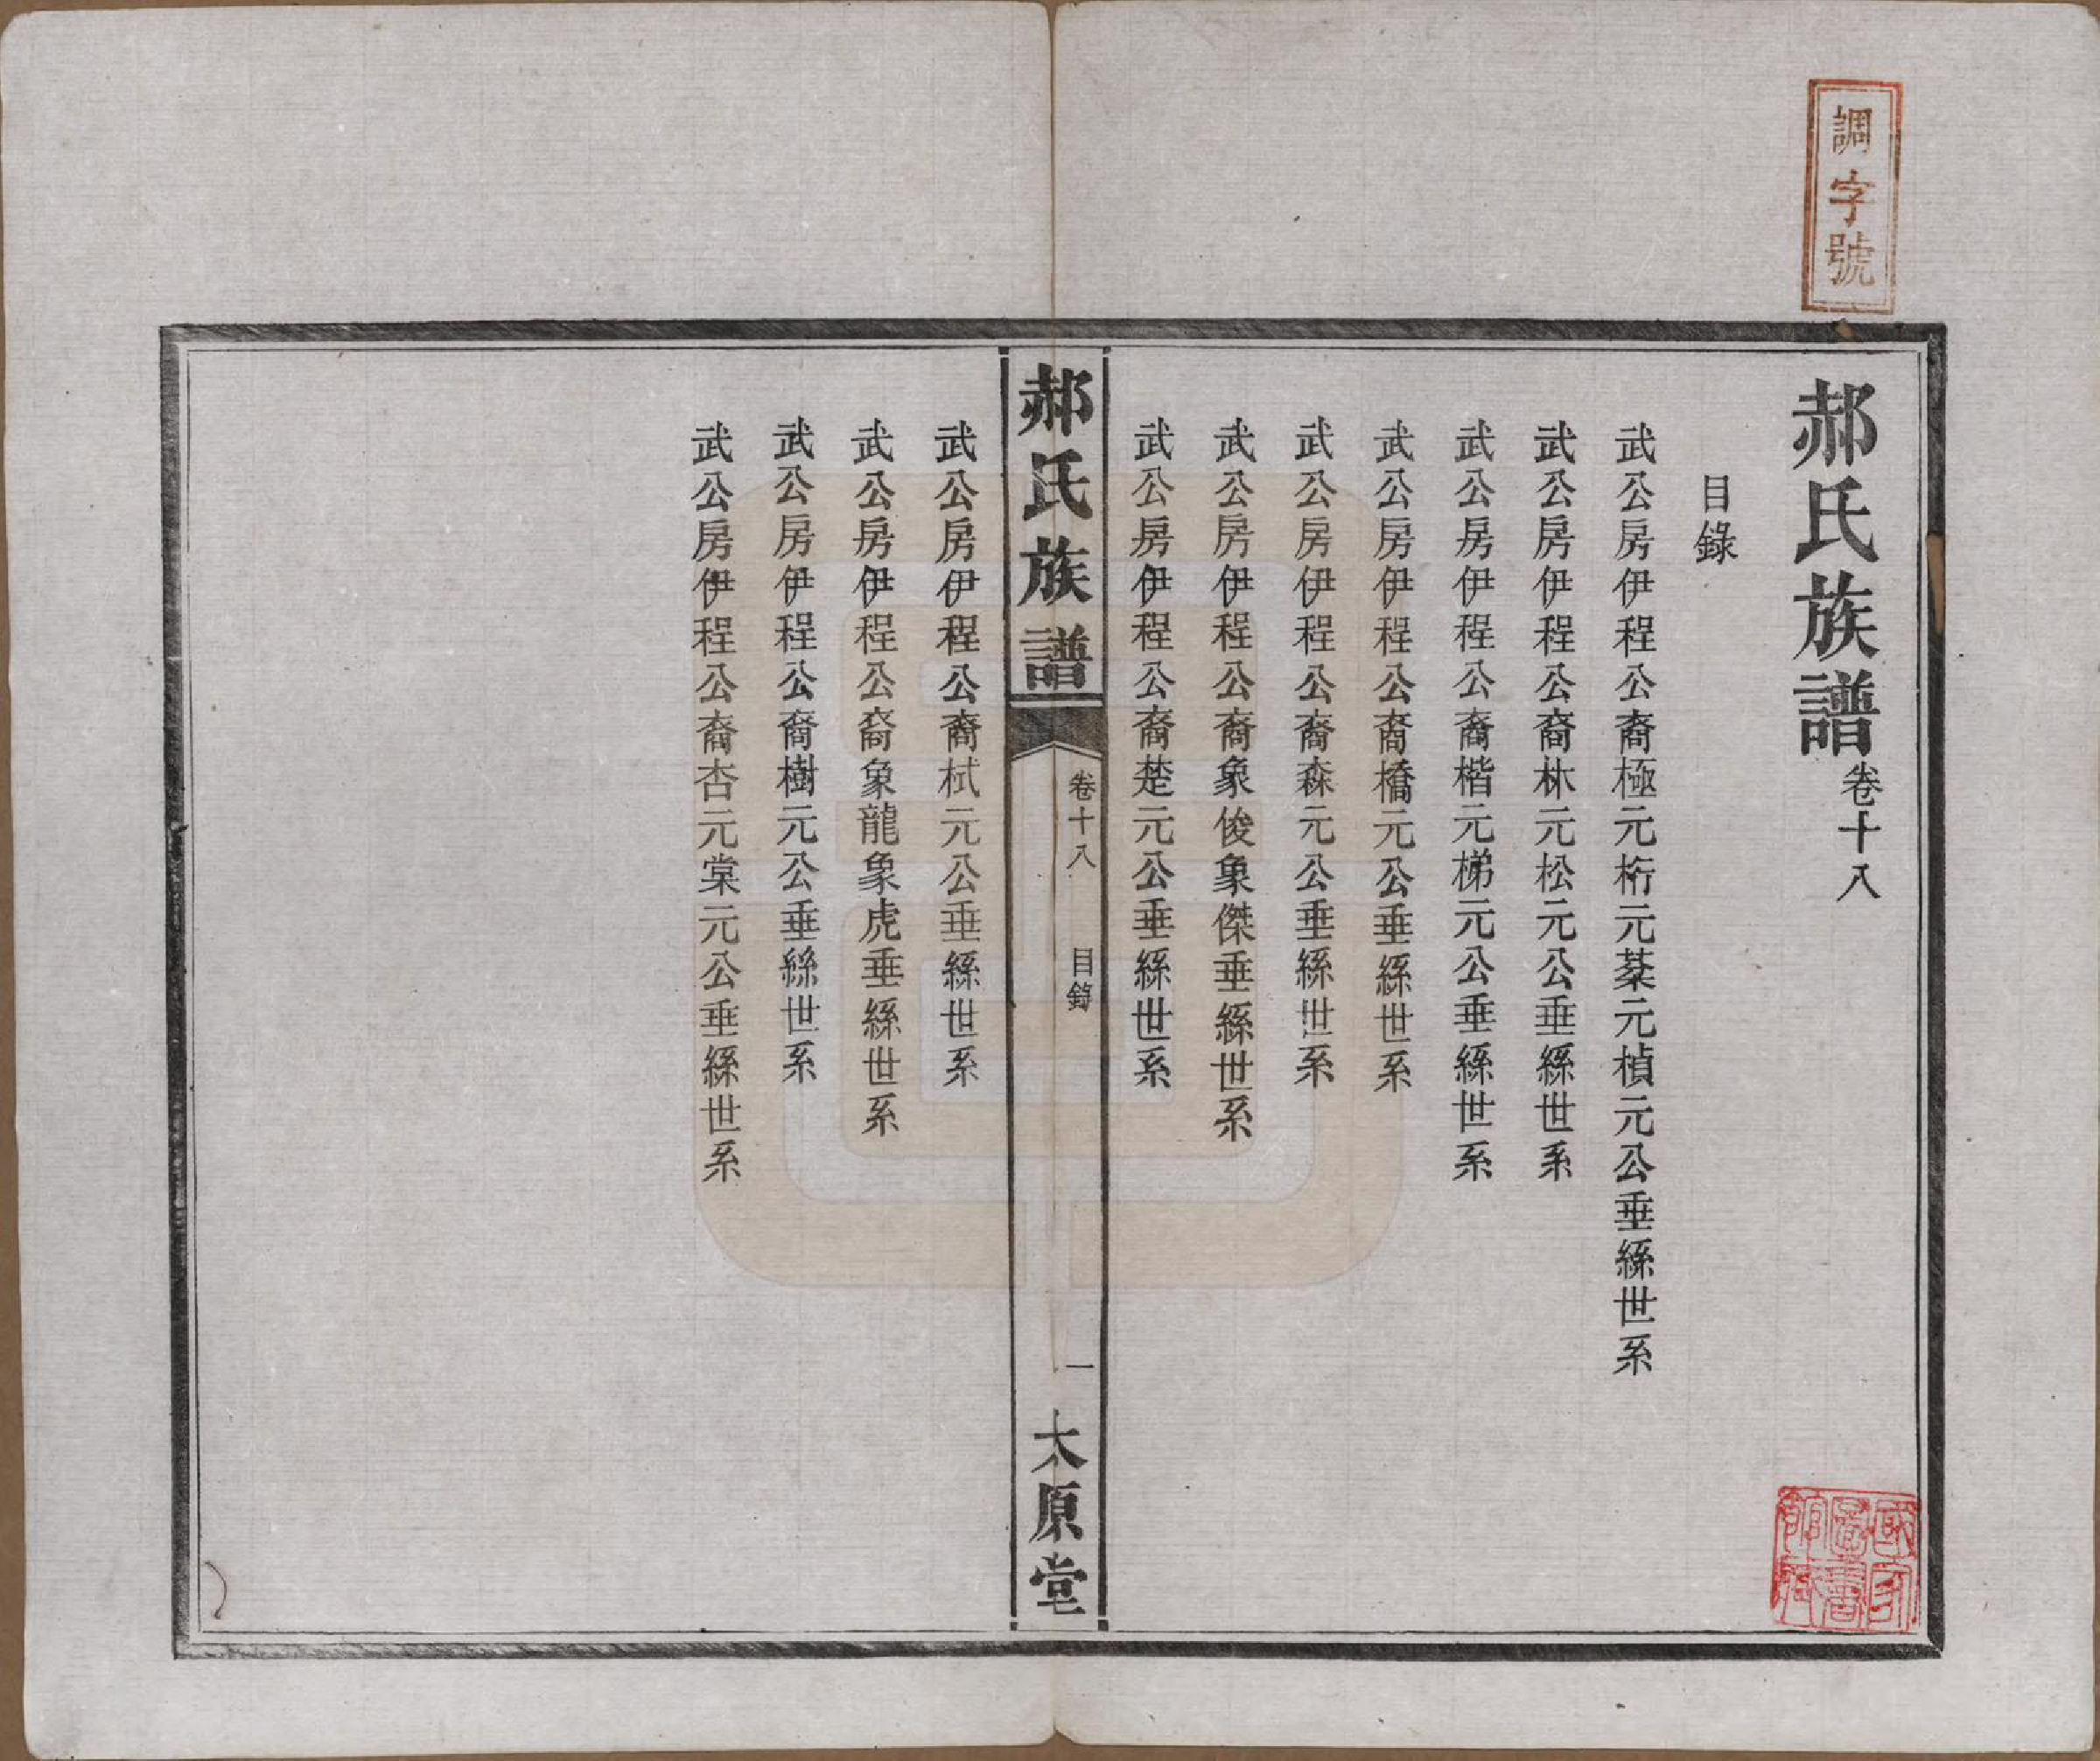 調字號
郝氏族譜卷十八
目錄
武公房伊程公裔極元桁元棊元楨元公垂緜世系
武公房伊程公裔林元松元公垂緜世系
武公房伊程公裔楷元梯元公垂緜世系
武公房伊程公裔橋元公垂緜世系
武公房伊程公裔森元公垂緜世系
武公房伊程公裔象俊象傑垂緜世系
武公房伊程公裔楚元公垂緜世系
郝氏族譜
卷十八
目錄
一
太原堂
武公房伊程公裔栻元公垂緜世系
武公房伊程公裔象龍象虎垂緜世系
武公房伊程公裔樹元公垂緜世系
武公房伊程公裔杏元棠元公垂緜世系
國家圖書館藏